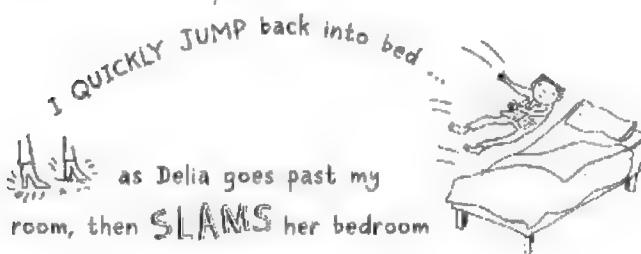 I QUICKLY JUMP back into bed ...
as Delia goes past my
room, then SLAMS her bedroom